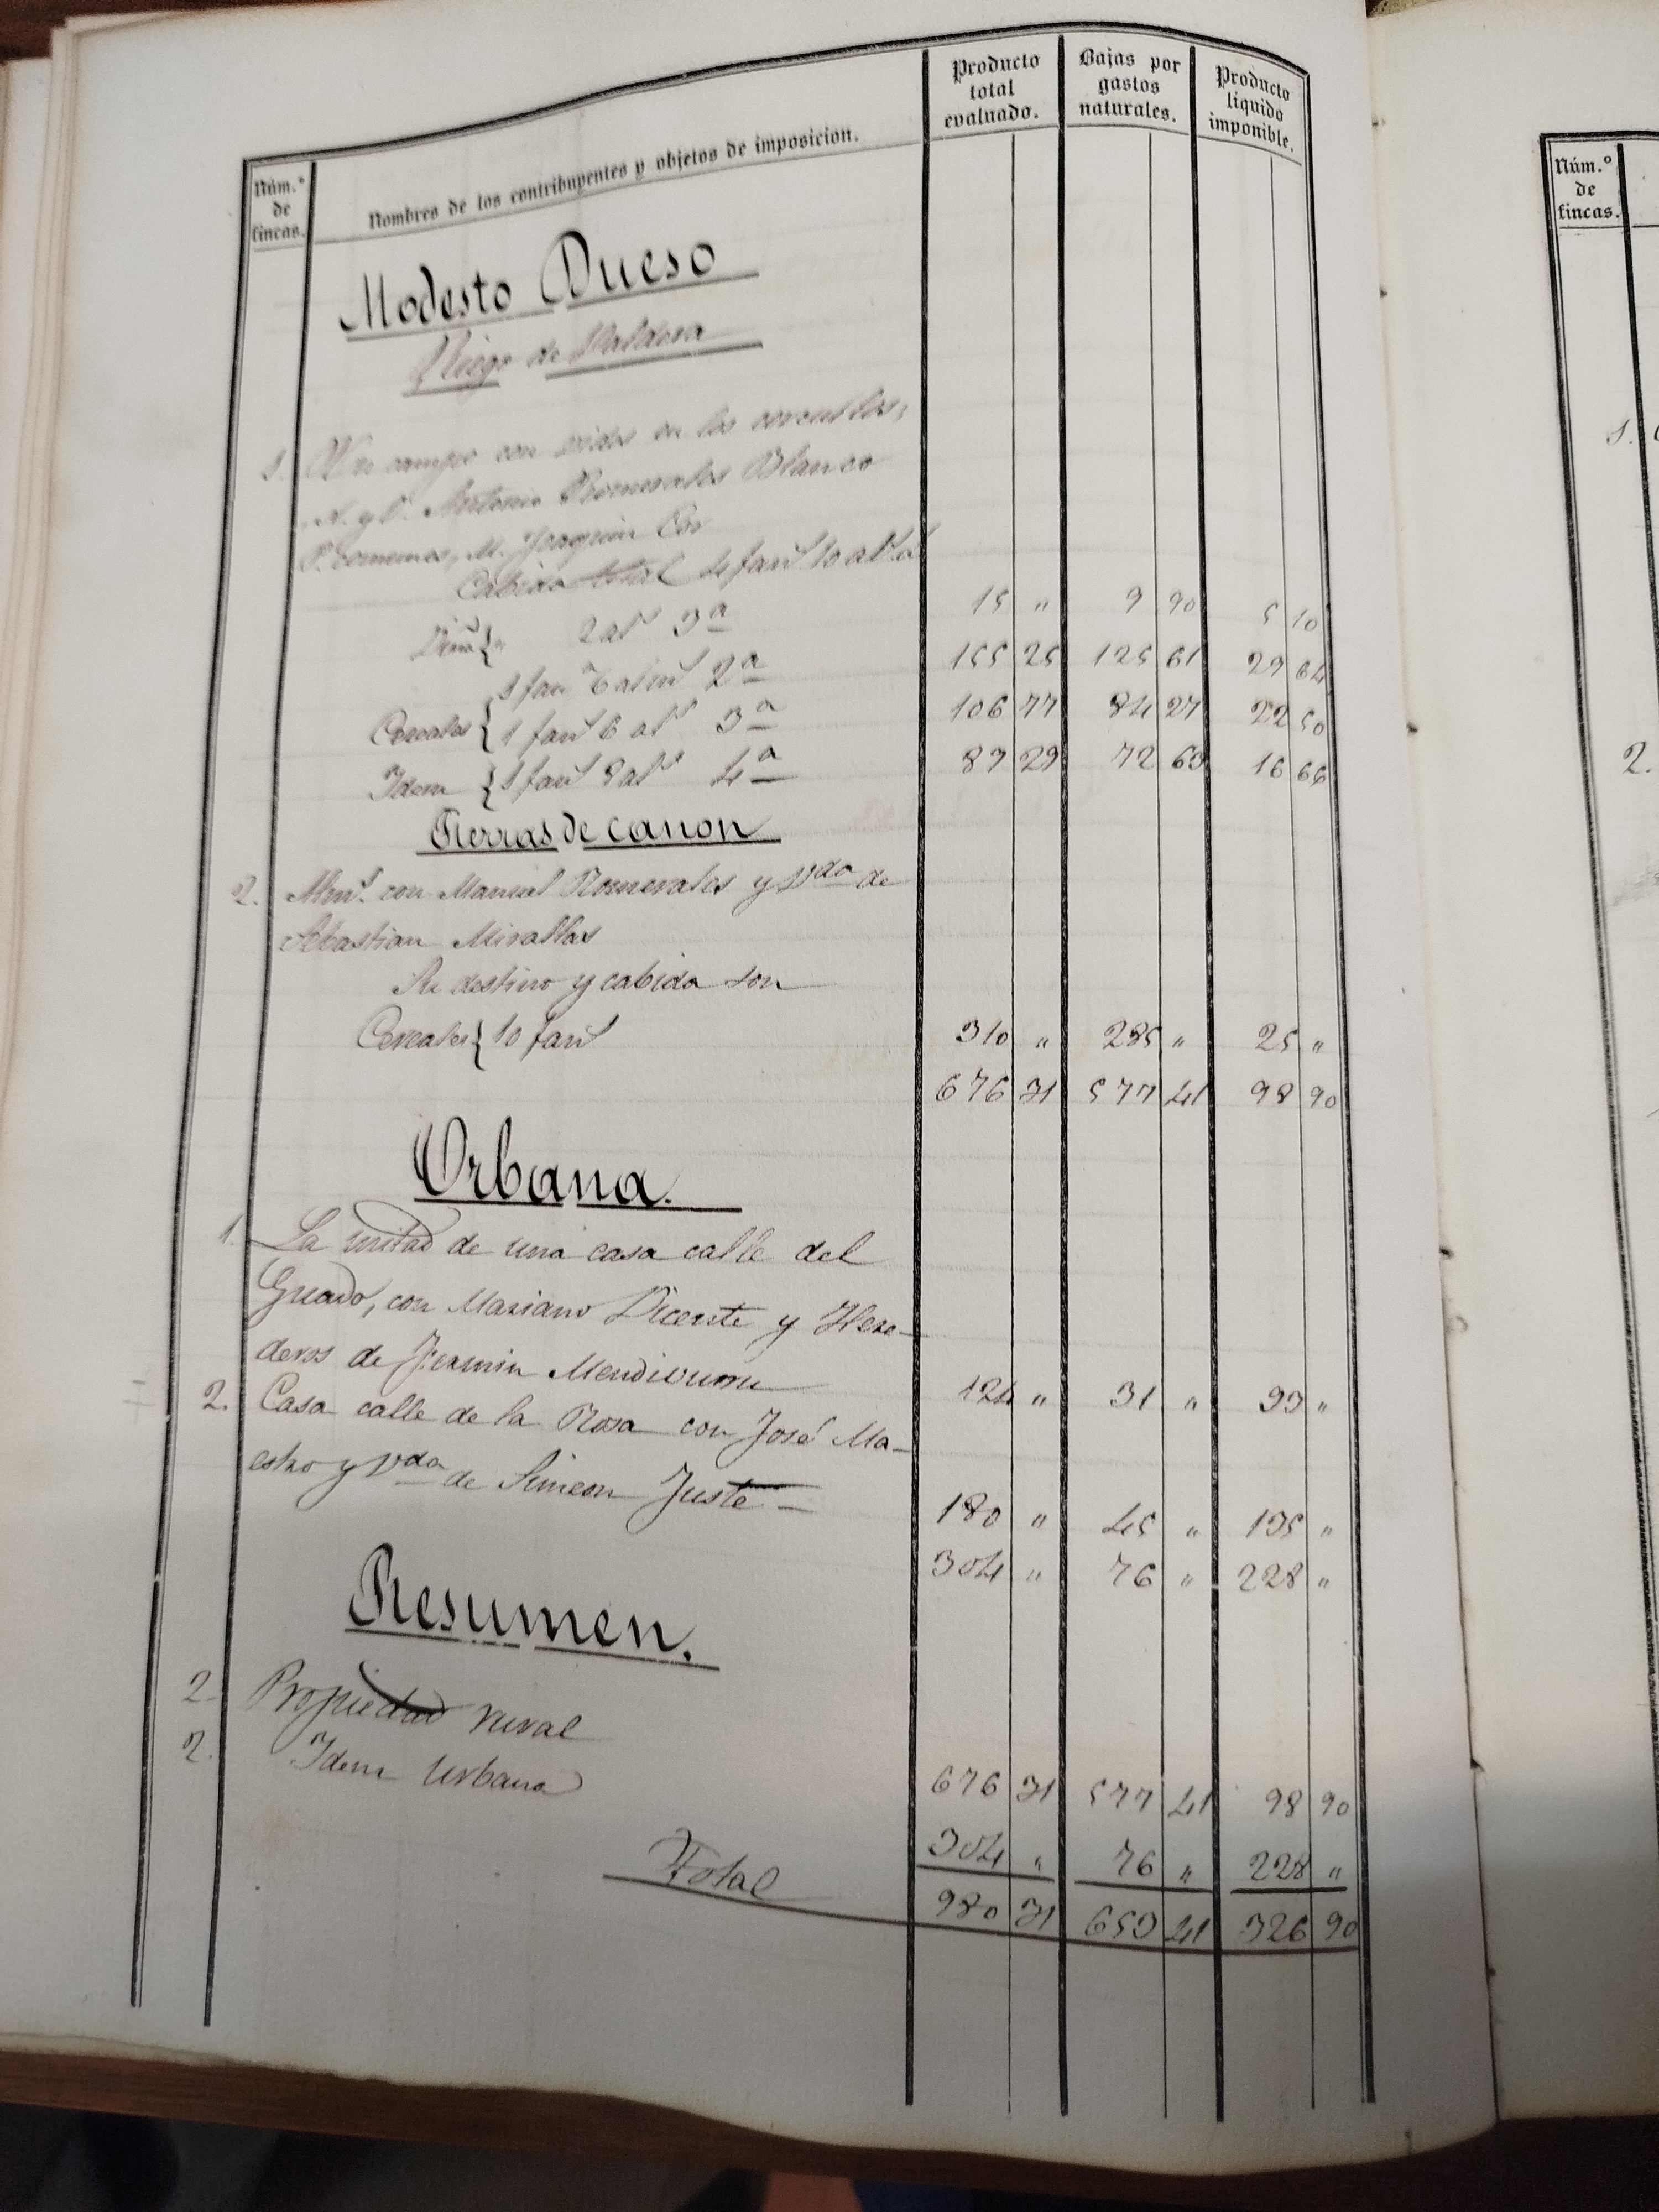 Núm.º de fincas.
Nombres de los contribuyentes y objetos de imposicion.
Producto total evaluado.
Bajas por gastos naturales.
Producto líquido imponible.
Modesto Dueso
Riego de Valdera
1. Un campo con vides en los corrales,
N. y O. Antonio Romerales Blanco
P. M. Joaquin
Cabida total 4 fanˢ 10 alˢ
Viña { " 2 alˢ 3ª 15 " 9 90 5 10
1 fanˢ 6 almˢ 2ª 155 25 125 61 29 64
Cereales { 1 fanˢ 6 alˢ 3ª 106 77 84 27 22 50
Idem { 1 fanˢ 8 alˢ 4ª 89 29 72 63 16 66
Tierras de canon
2. con Manuel Romerales y Vda de
Sebastian Mirallas
Su destino y cabida son
Cereales { 10 fanˢ 310 " 285 " 25 "
676 31 577 41 98 90
Urbana.
1. La mitad de una casa calle del
Guado, con Mariano Vicente y Here-
deros de Fermin
124 " 31 " 93 "
2. Casa calle de la Rosa con José Ma-
estro y Vda de Simeon Juste
180 " 45 " 135 "
304 " 76 " 228 "
Resumen.
2. Propiedad rural 676 31 577 41 98 90
2. Idem Urbana 304 " 76 " 228 "
Total 980 31 653 41 326 90
Núm.º de fincas.
1.
2.